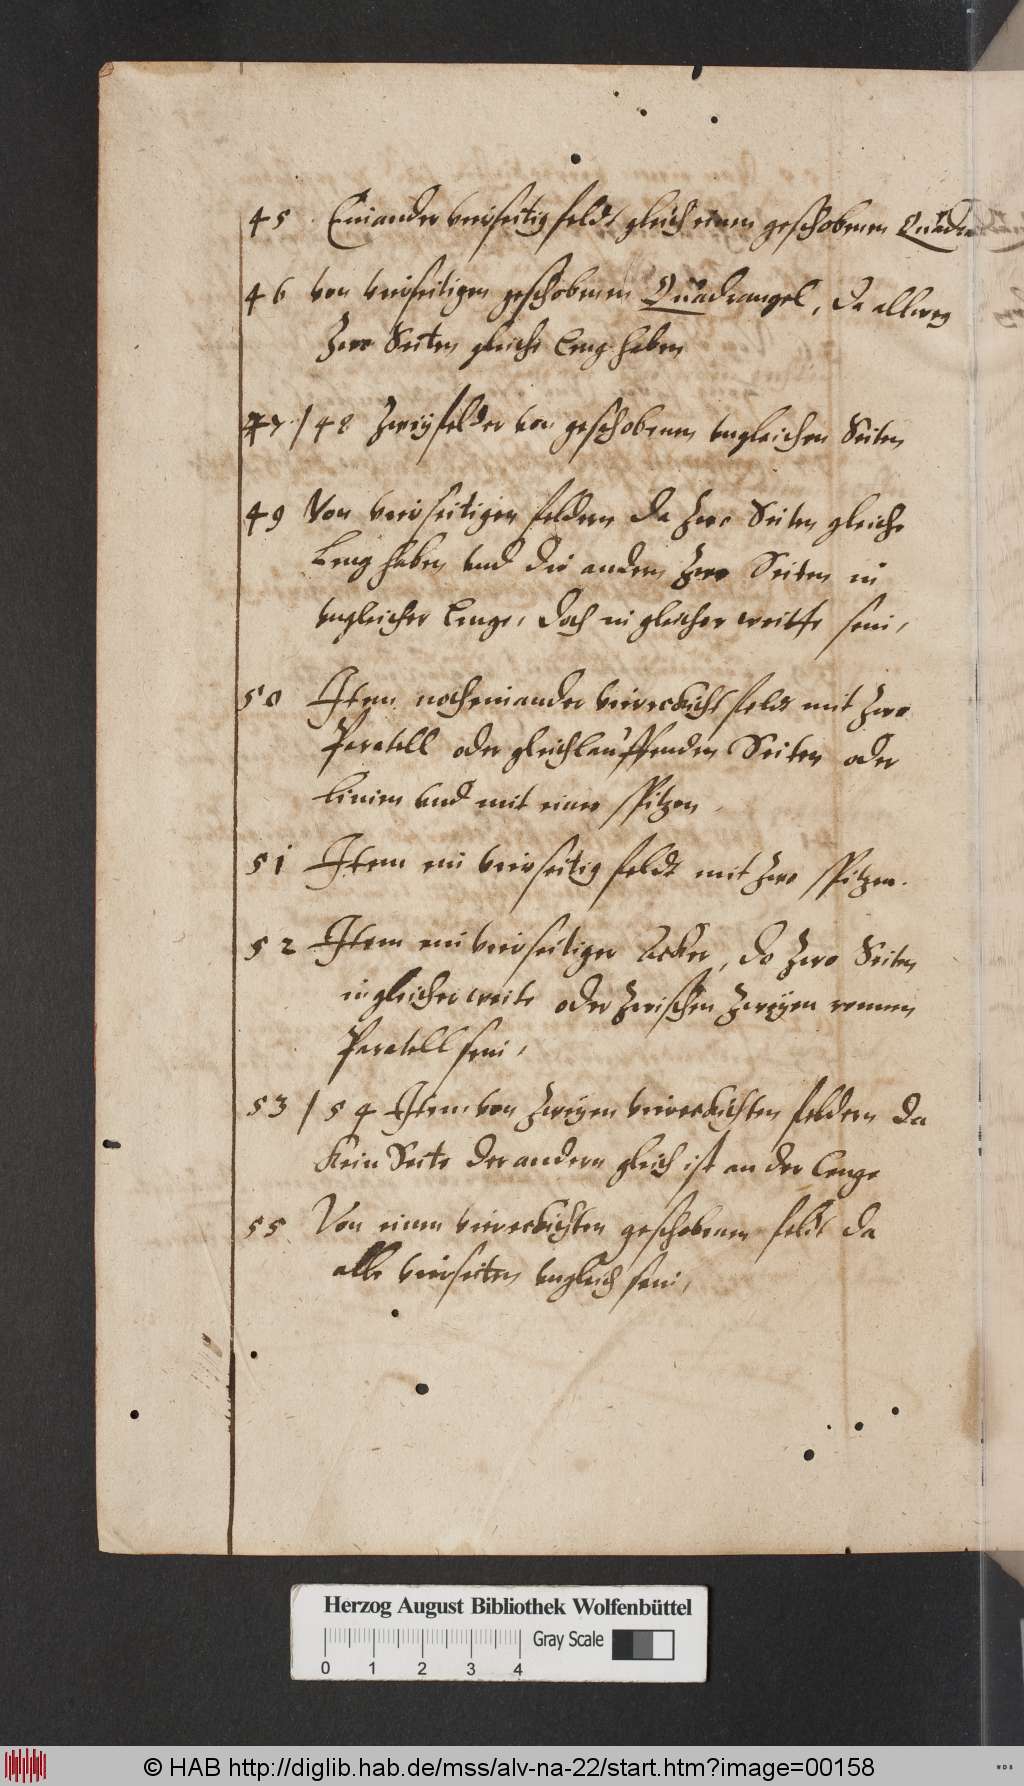 45 . Ein ander vierseitig feldt gleich einem geschobenen Quadra
46 von vierseitigen geschobenen Quadrangel, da allweg
Zwo Seiten gleiche Leng haben
47 / 48 Zweÿ felder von geschobenen vngleichen Seiten
49 Von vierseitigen feldern da Zwo Seiten gleiche
Leng haben vnd die andern Zwo Seiten in
vngleicher Lenge, doch in gleicher weitte sein,
50 Item noch ein ander viereckicht feldt mit Zwo
Paralell oder gleichlauffenden Seiten oder
Linien vnd mit einer spitzen,
51 Item ein vierseitig feldt mit Zwo spitzen.
52 Item ein vierseitiger Acker, do Zwo Seiten
in gleicher weite oder Zwischen Zweÿen
Paralell sein,
53 / 54 Item von Zweyen viereckichten feldern da
Kein Seite der andern gleich ist an der Lenge
55 Von einem viereckichten geschobenen feldt da
alle vierseiten vngleich sein,
Herzog August Bibliothek Wolfenbüttel
Gray Scale
0 1 2 3 4
© HAB http://diglib.hab.de/mss/alv-na-22/start.htm?image=00158